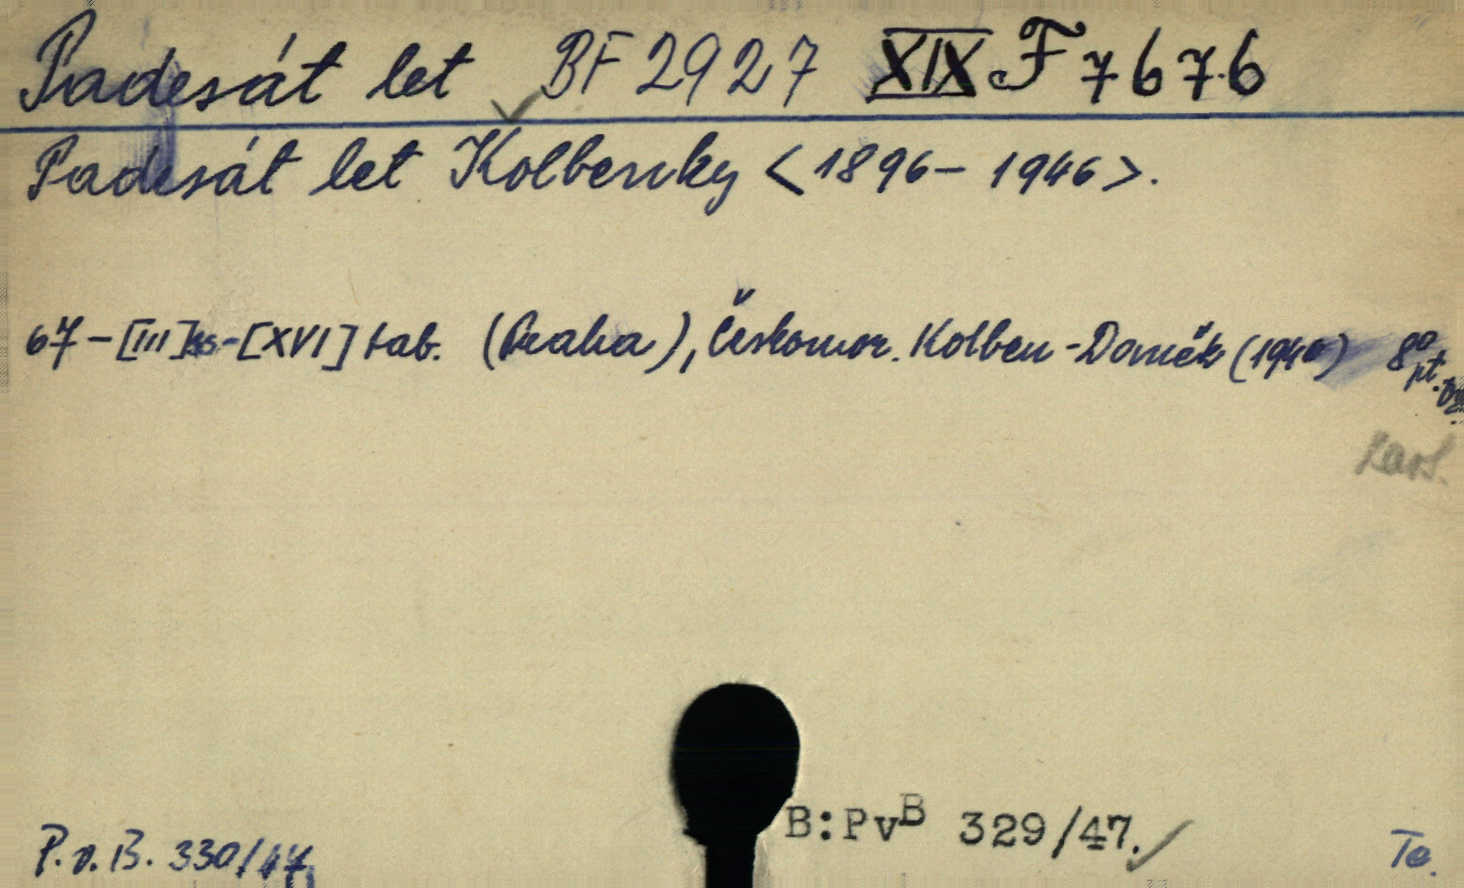 Padesát let BF 2927 XIX F 7676
Padesát let Kolbenky <1896-1946>.
67-[III]ss-[XVI] tab. (Praha), Českomor. Kolben-Daněk (1946) 8°
pt.
P.v.B. 330/47
B:PvB 329/47.
Te.